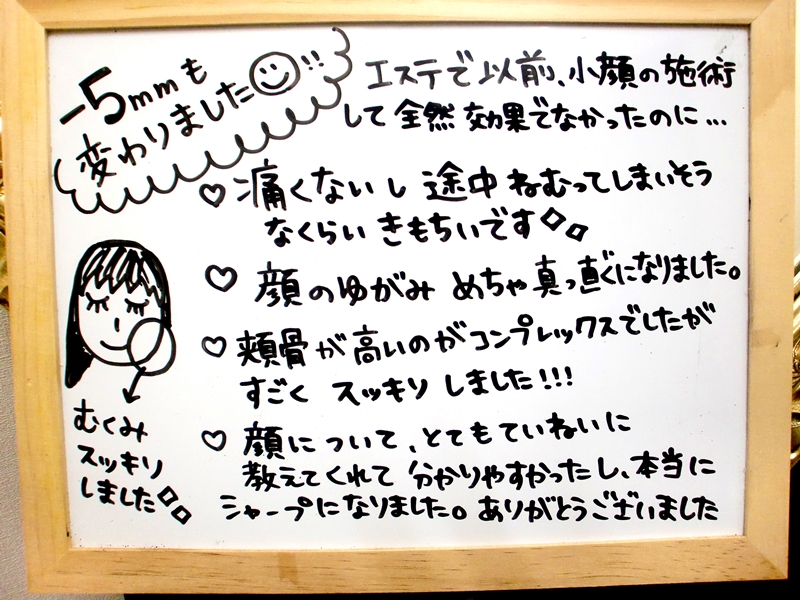 -5mmも
変わりました!!
エステで以前、小顔の施術
して全然効果でなかったのに…
♡ 痛くないし途中ねむってしまいそう
なくらいきもちいです◇◇
♡ 顔のゆがみめちゃ真っ直ぐになりました。
♡ 頬骨が高いのがコンプレックスでしたが
すごくスッキリしました!!!
♡ 顔について、とてもていねいに
教えてくれて分かりやすかったし、本当に
シャープになりました。ありがとうございました
むくみ
スッキリ
しました◇◇